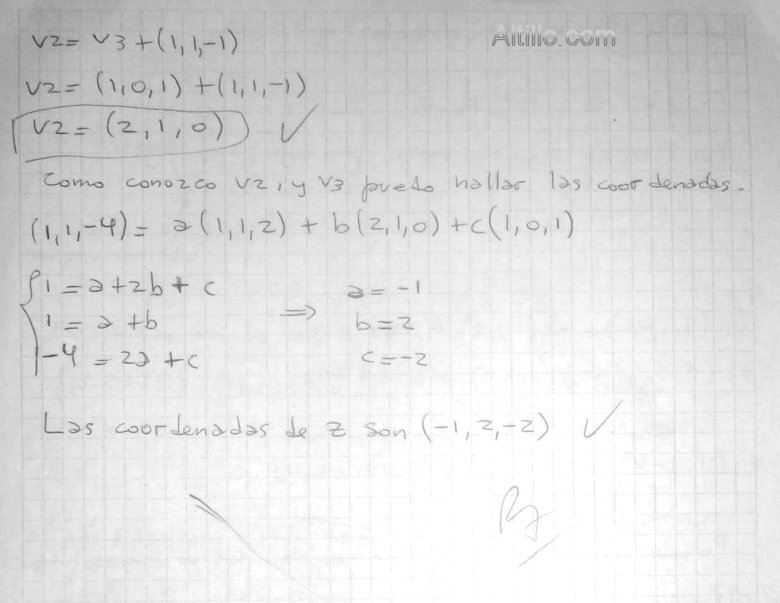 Altillo.com
v2= v3+(1,1,-1)
v2= (1,0,1) +(1,1,-1)
v2= (2,1,0) ✓
Como conozco v2, y v3 puedo hallar las coordenadas.
(1,1,-4)= a(1,1,2) + b(2,1,0) +c(1,0,1)
1 = a+2b+ c ⇒ a= -1
1 = a +b b=2
-4 = 2a +c c=-2
Las coordenadas de z son (-1, 2,-2) ✓